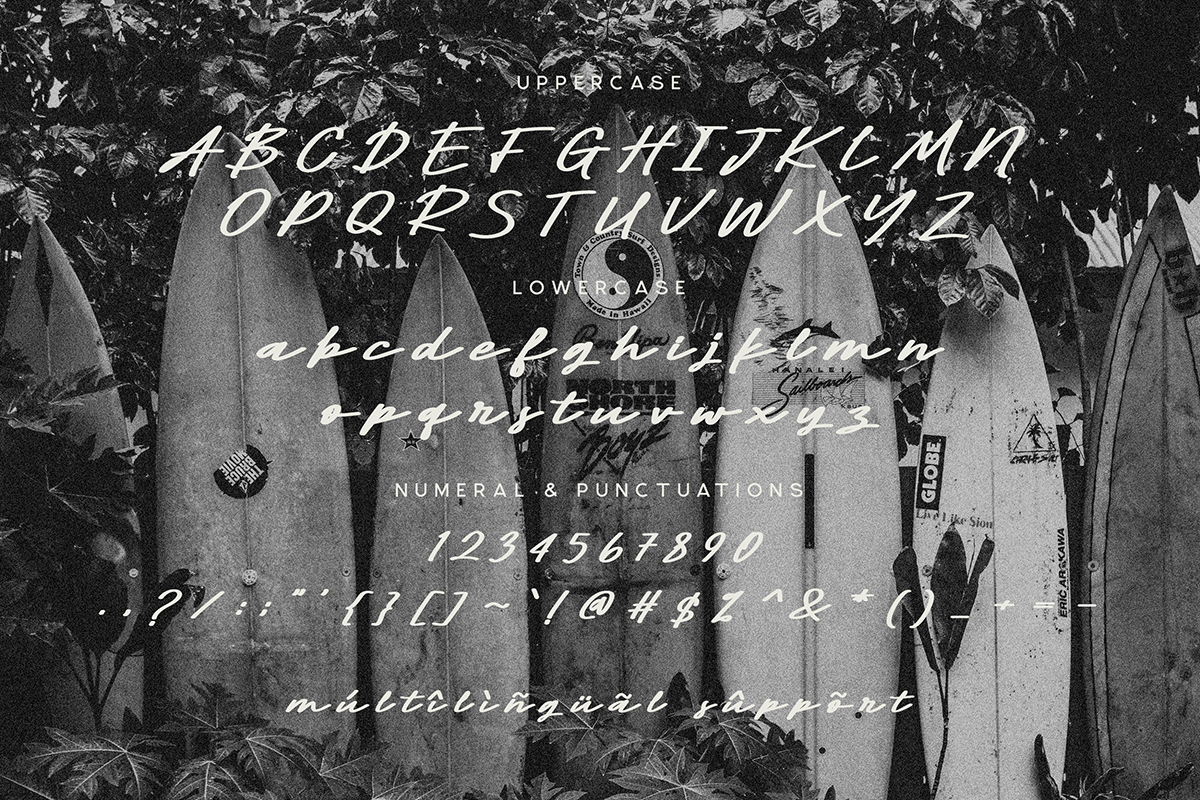 UPPERCASE
ABCDEFGHIJKLMN
OPQRSTUVWXYZ
Town & Country Surf Designs
Made in Hawaii
LOWERCASE
abcdefghijklmn
opqrstuvwxyz
NORTH
SHORE
Boyz
HANALEI
Sailboards
THE
BRUCE
MOVIE
GLOBE
Live Like Sion
ERIC ARAKAWA
NUMERAL & PUNCTUATIONS
1234567890
. , ? / : ; " ' { } [ ] ~ ` ! @ # $ % ^ & * ( ) _ + = -
múltîlìñgüãl sûppõrt